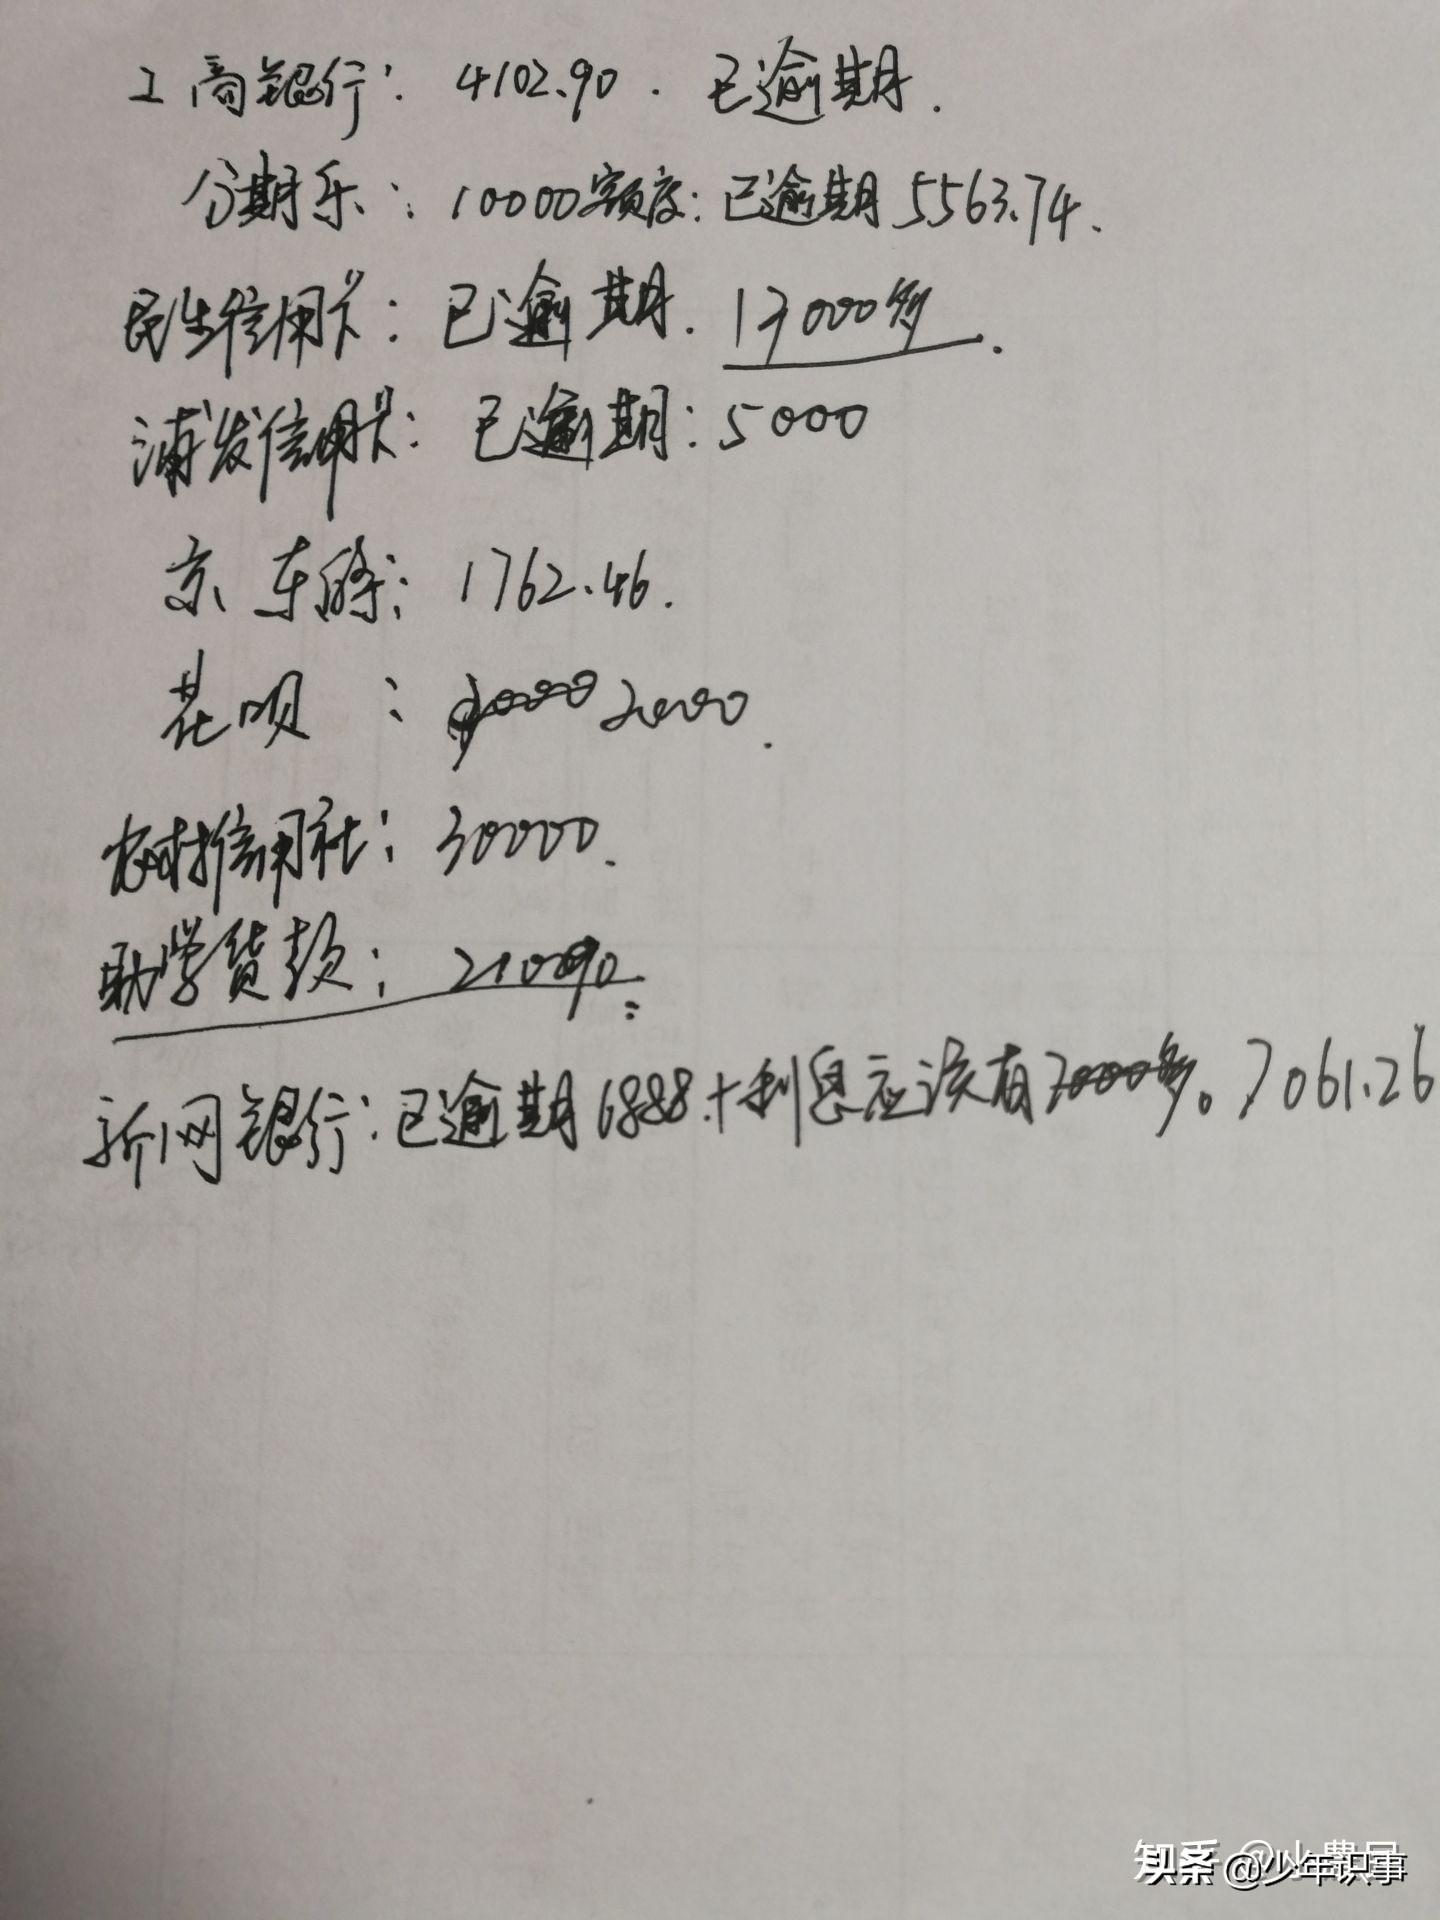 工商银行: 4102.90. 已逾期.
分期乐: 10000额度: 已逾期5563.74.
民生信用卡: 已逾期. 13000多.
浦发信用卡: 已逾期: 5000
京东: 1762.46.
花呗: 2000.
农村信用社: 30000.
助学贷款:
新网银行: 已逾期6888.+利息应该有7000多。7061.26
头条 @少年识事